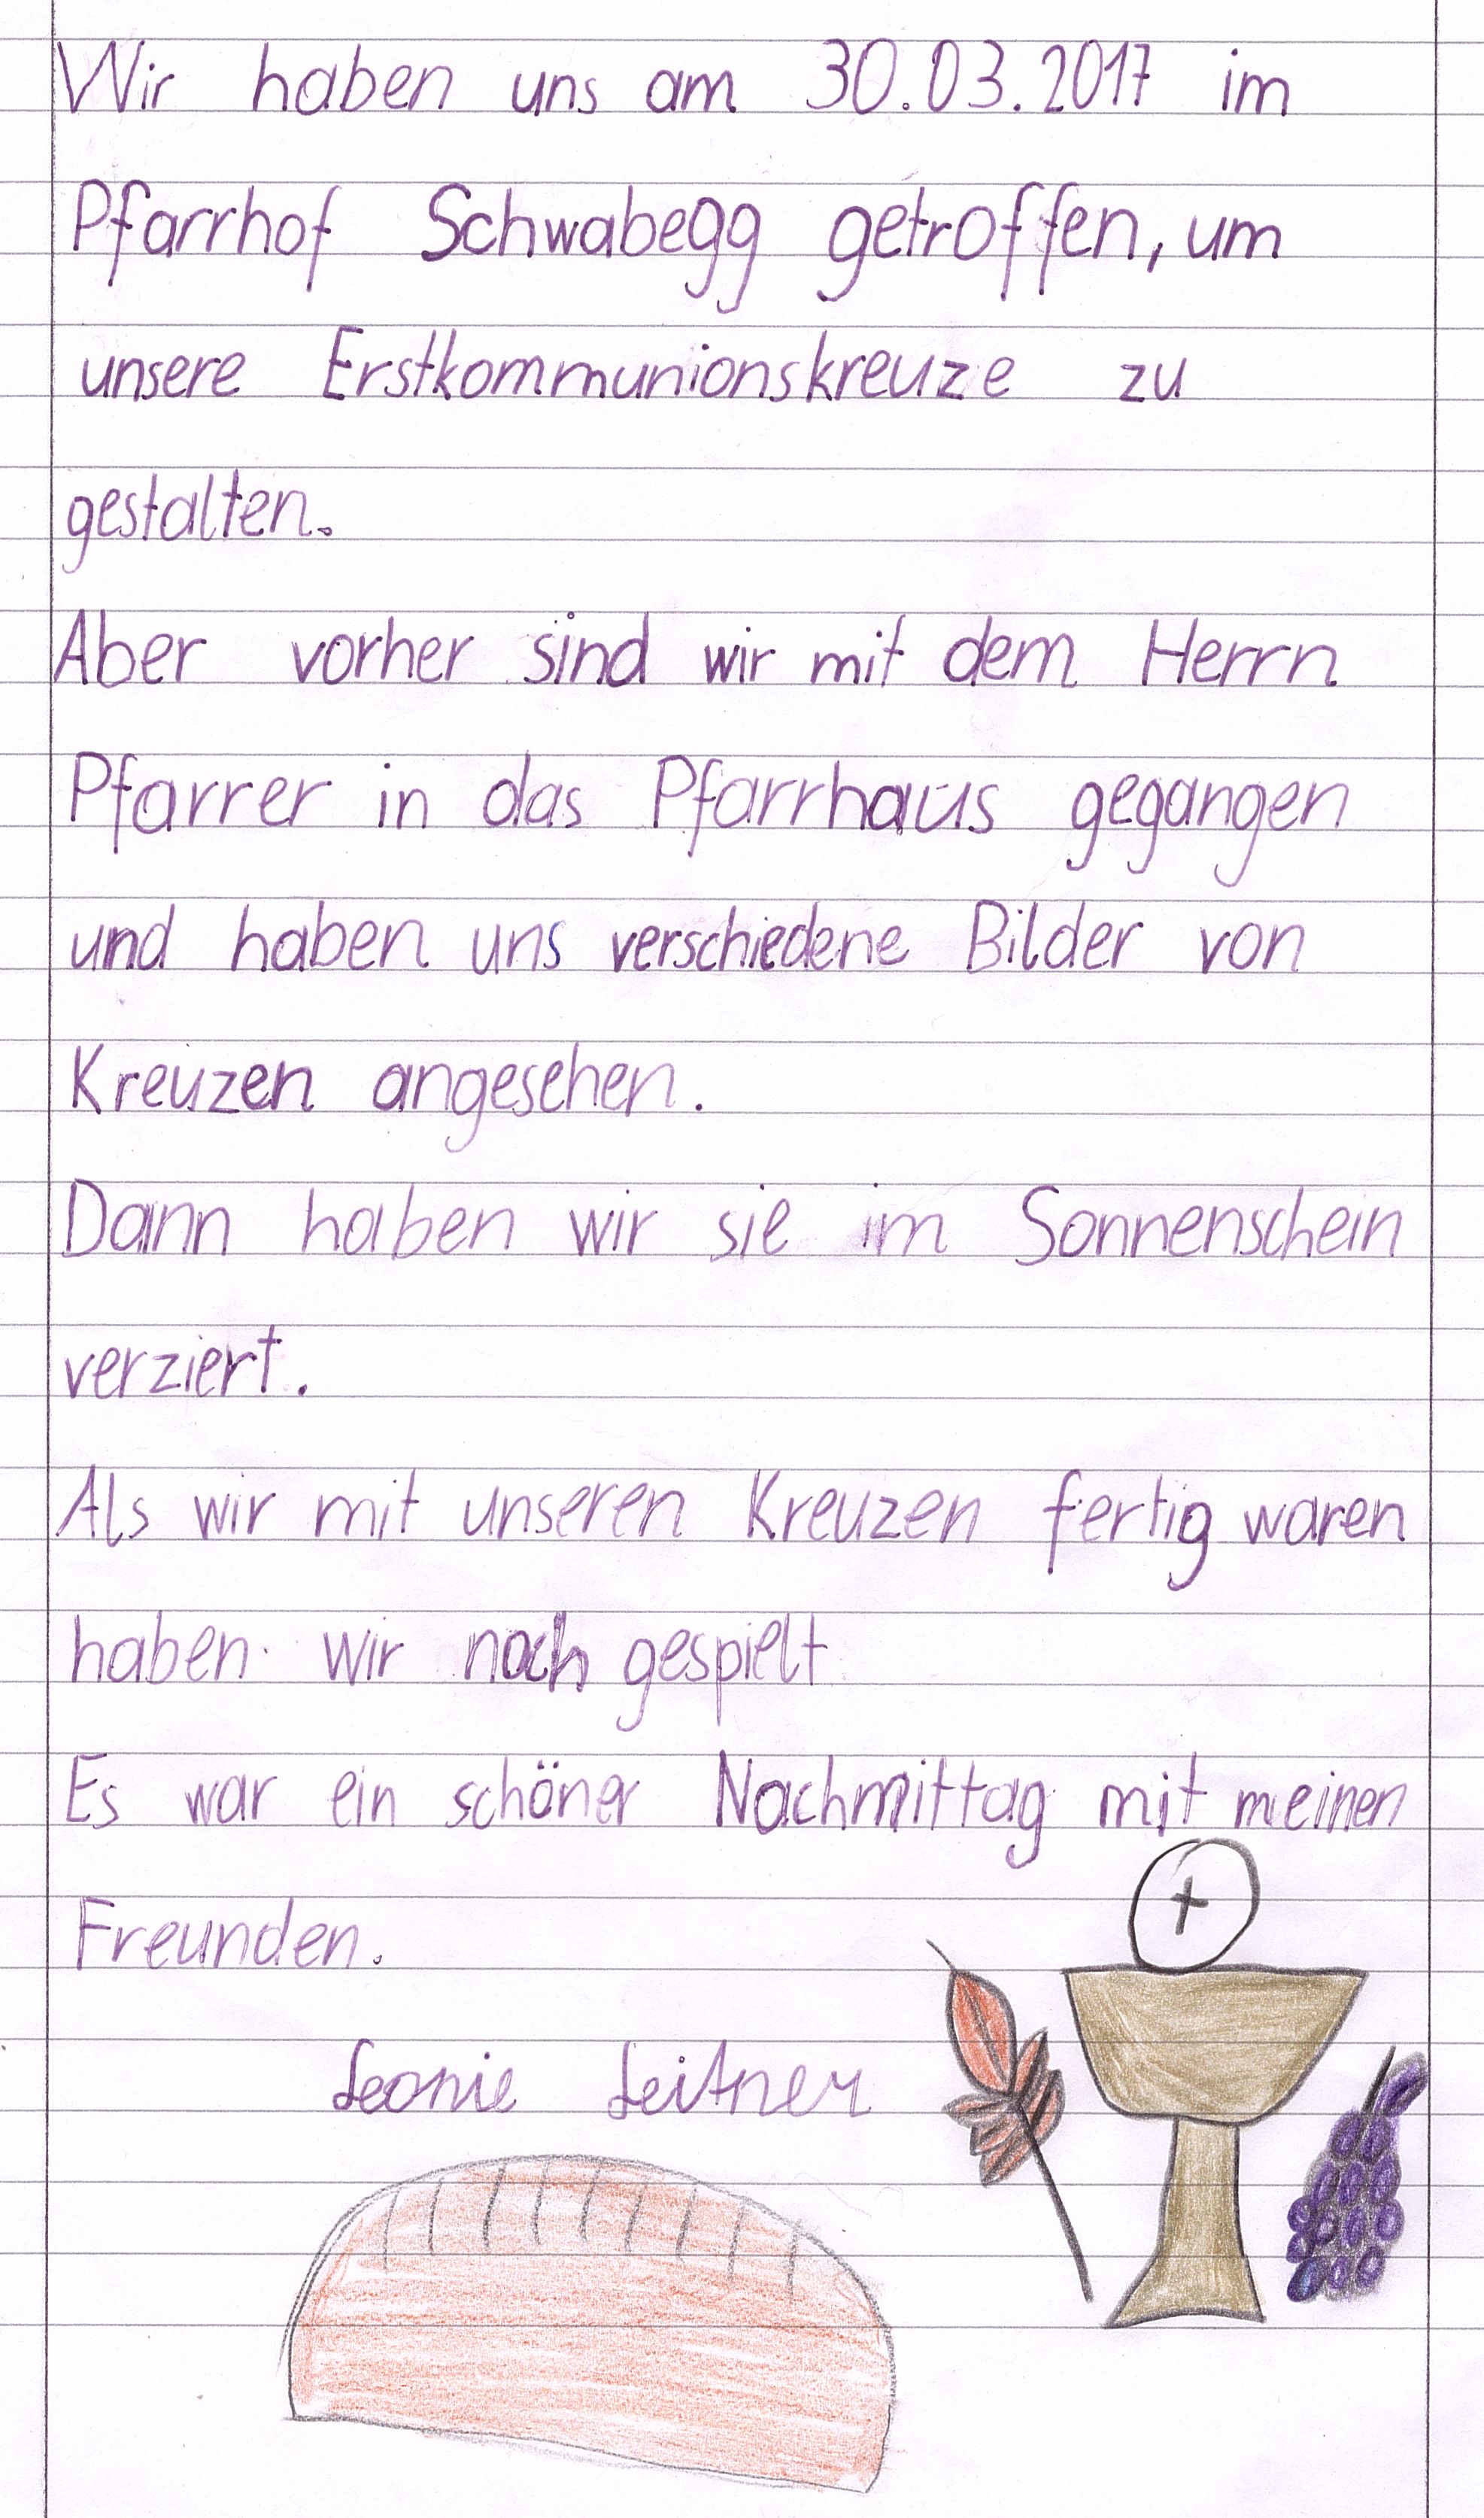 Wir haben uns am 30.03.2017 im
Pfarrhof Schwabegg getroffen, um
unsere Erstkommunionskreuze zu
gestalten.
Aber vorher sind wir mit dem Herrn
Pfarrer in das Pfarrhaus gegangen
und haben uns verschiedene Bilder von
Kreuzen angesehen.
Dann haben wir sie im Sonnenschein
verziert.
Als wir mit unseren Kreuzen fertig waren
haben wir noch gespielt
Es war ein schöner Nachmittag mit meinen
Freunden.
Leonie Leitner